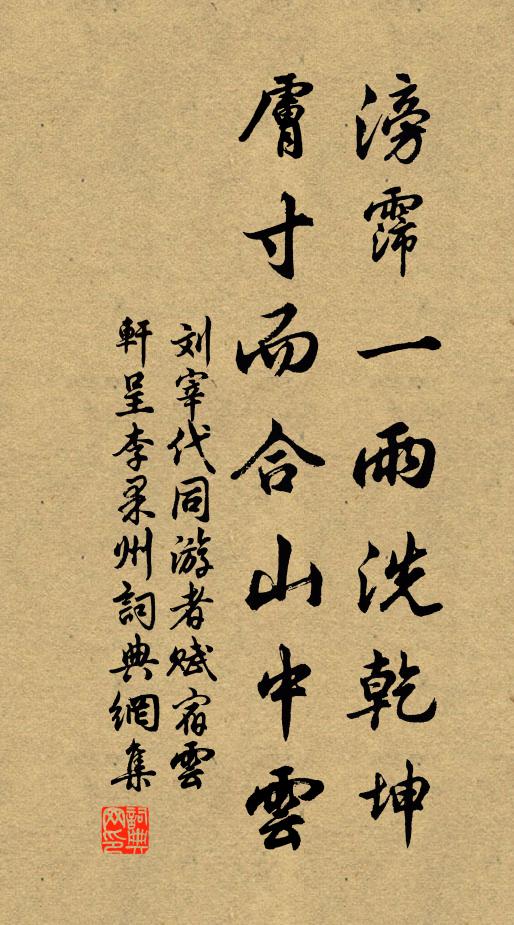 滂霈一雨洗乾坤
膚寸而合山中雲
刘宰代同游者赋宿雲
軒呈李果州詞典網集
詞典
网印